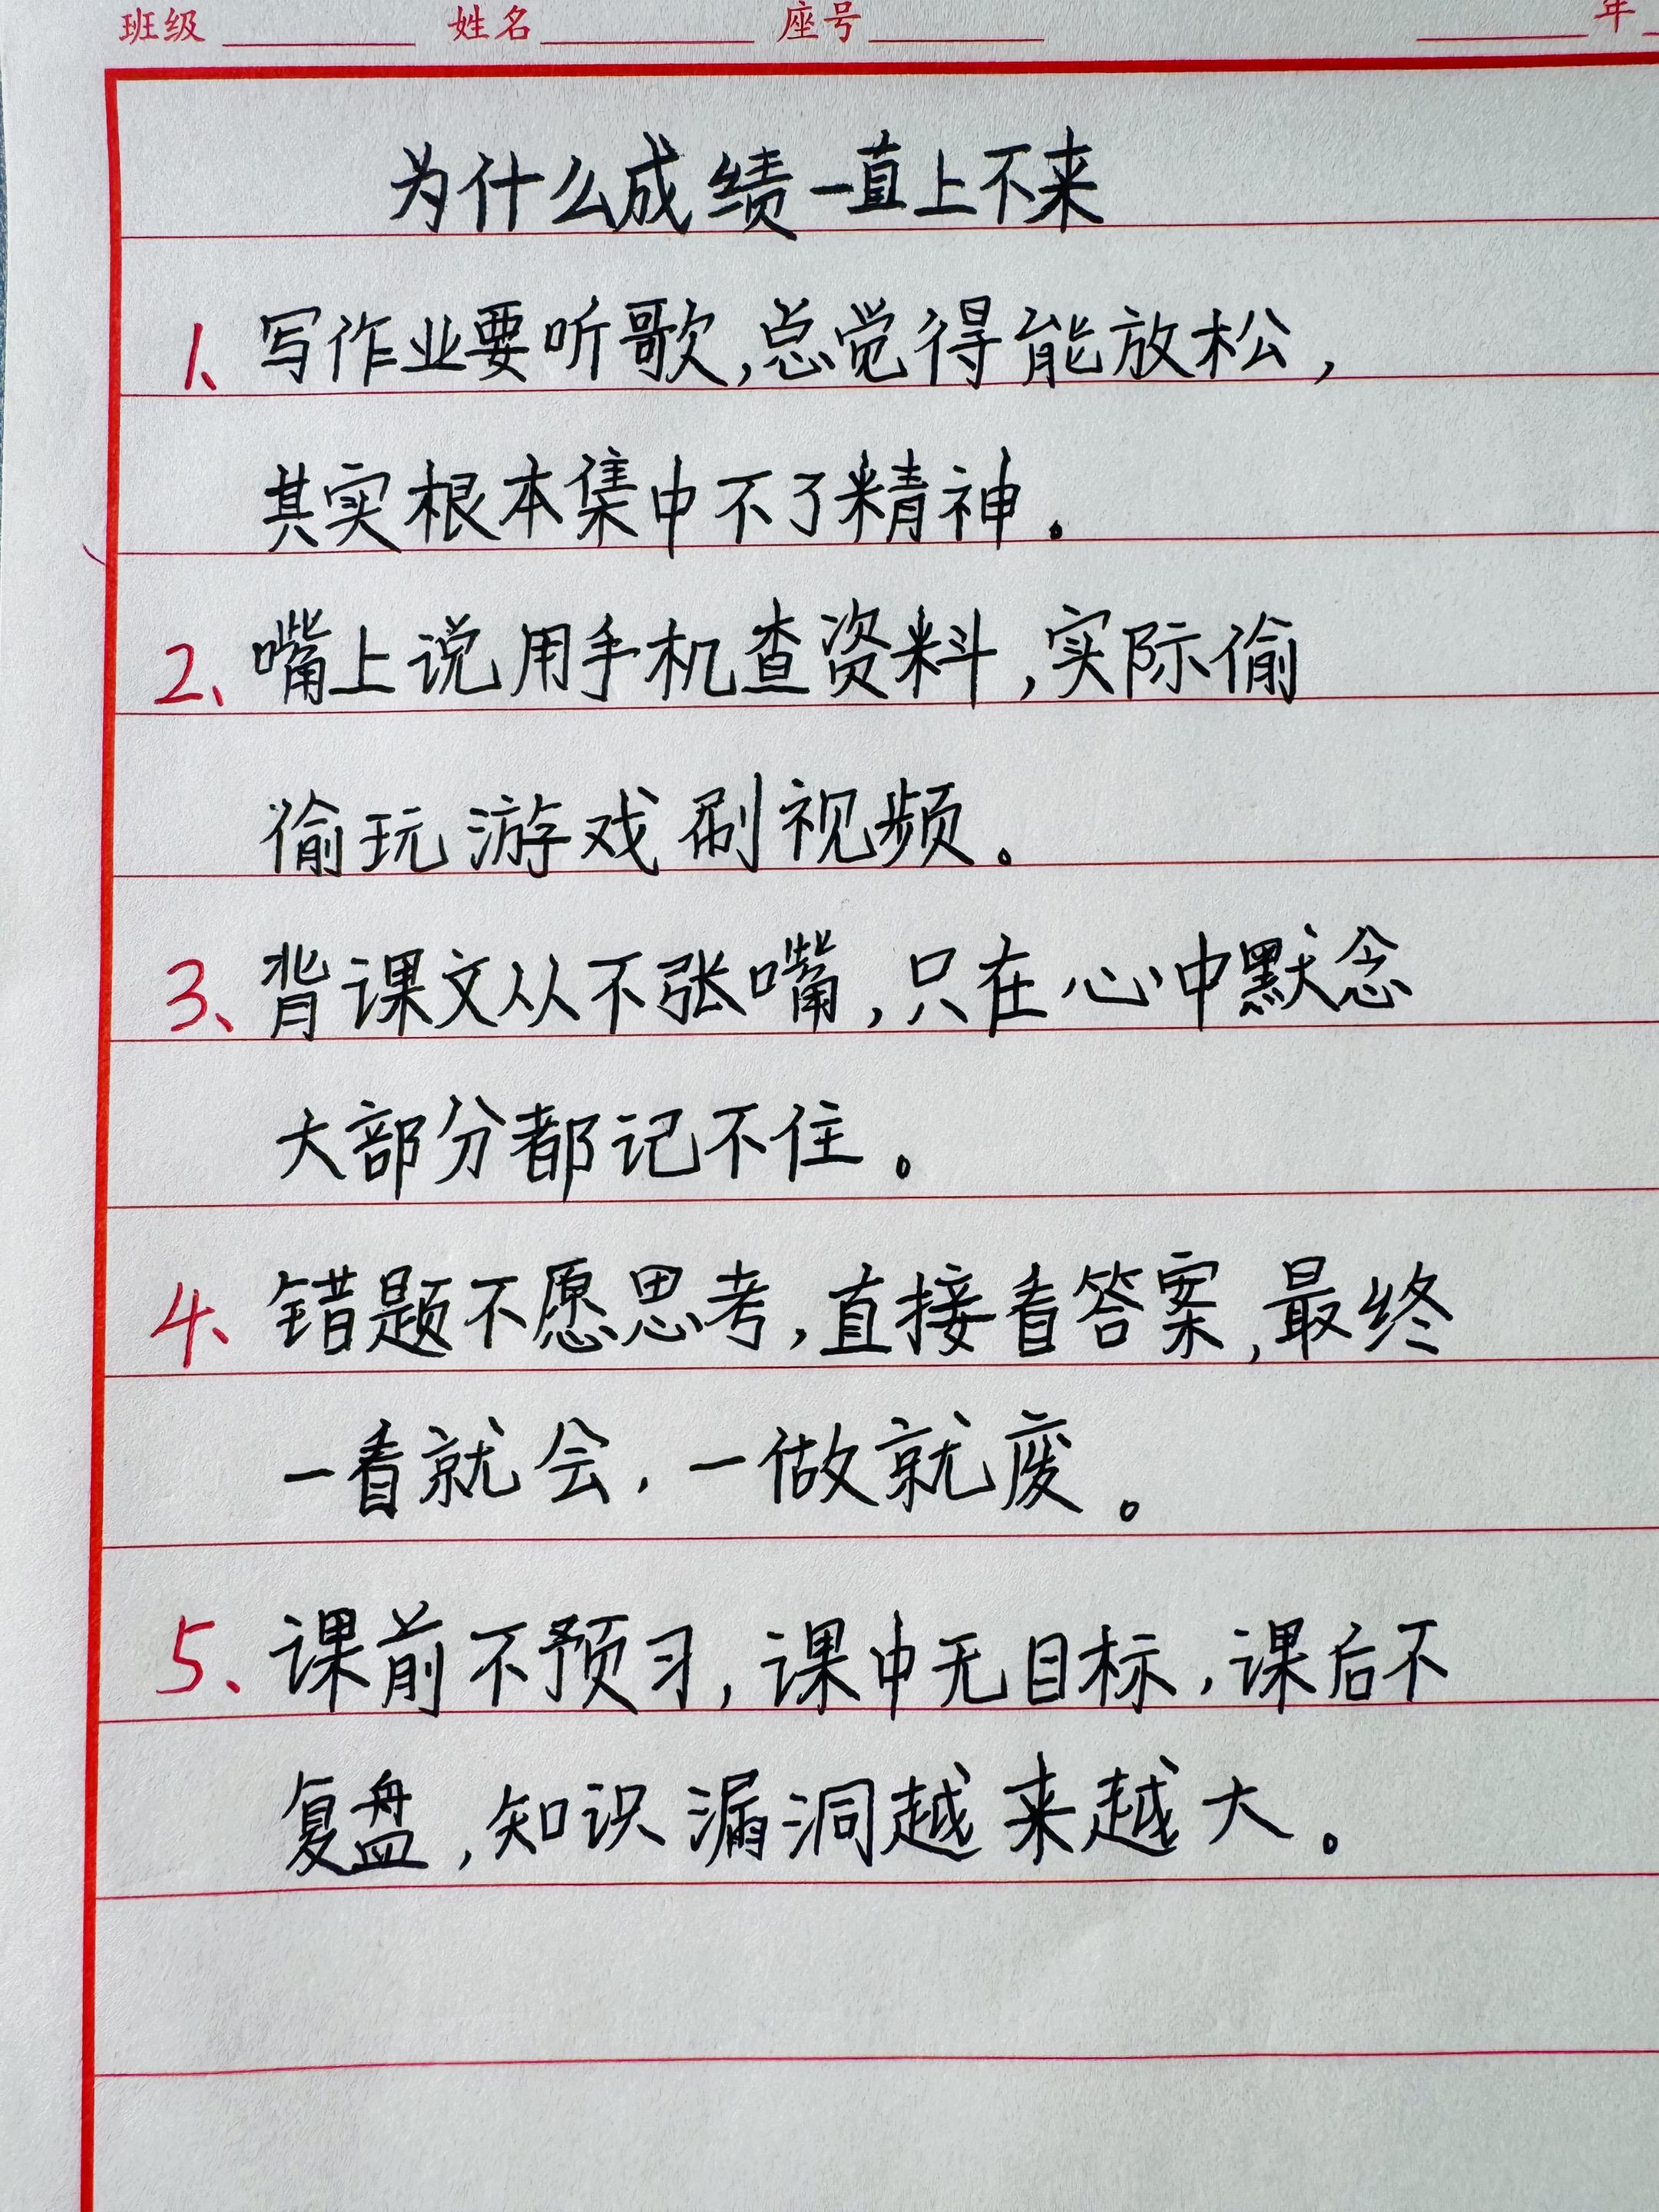 班级 姓名 座号 年
为什么成绩一直上不来
1、写作业要听歌,总觉得能放松,
其实根本集中不了精神。
2、嘴上说用手机查资料,实际偷
偷玩游戏刷视频。
3、背课文从不张嘴,只在心中默念
大部分都记不住。
4、错题不愿思考,直接看答案,最终
一看就会,一做就废。
5、课前不预习,课中无目标,课后不
复盘,知识漏洞越来越大。